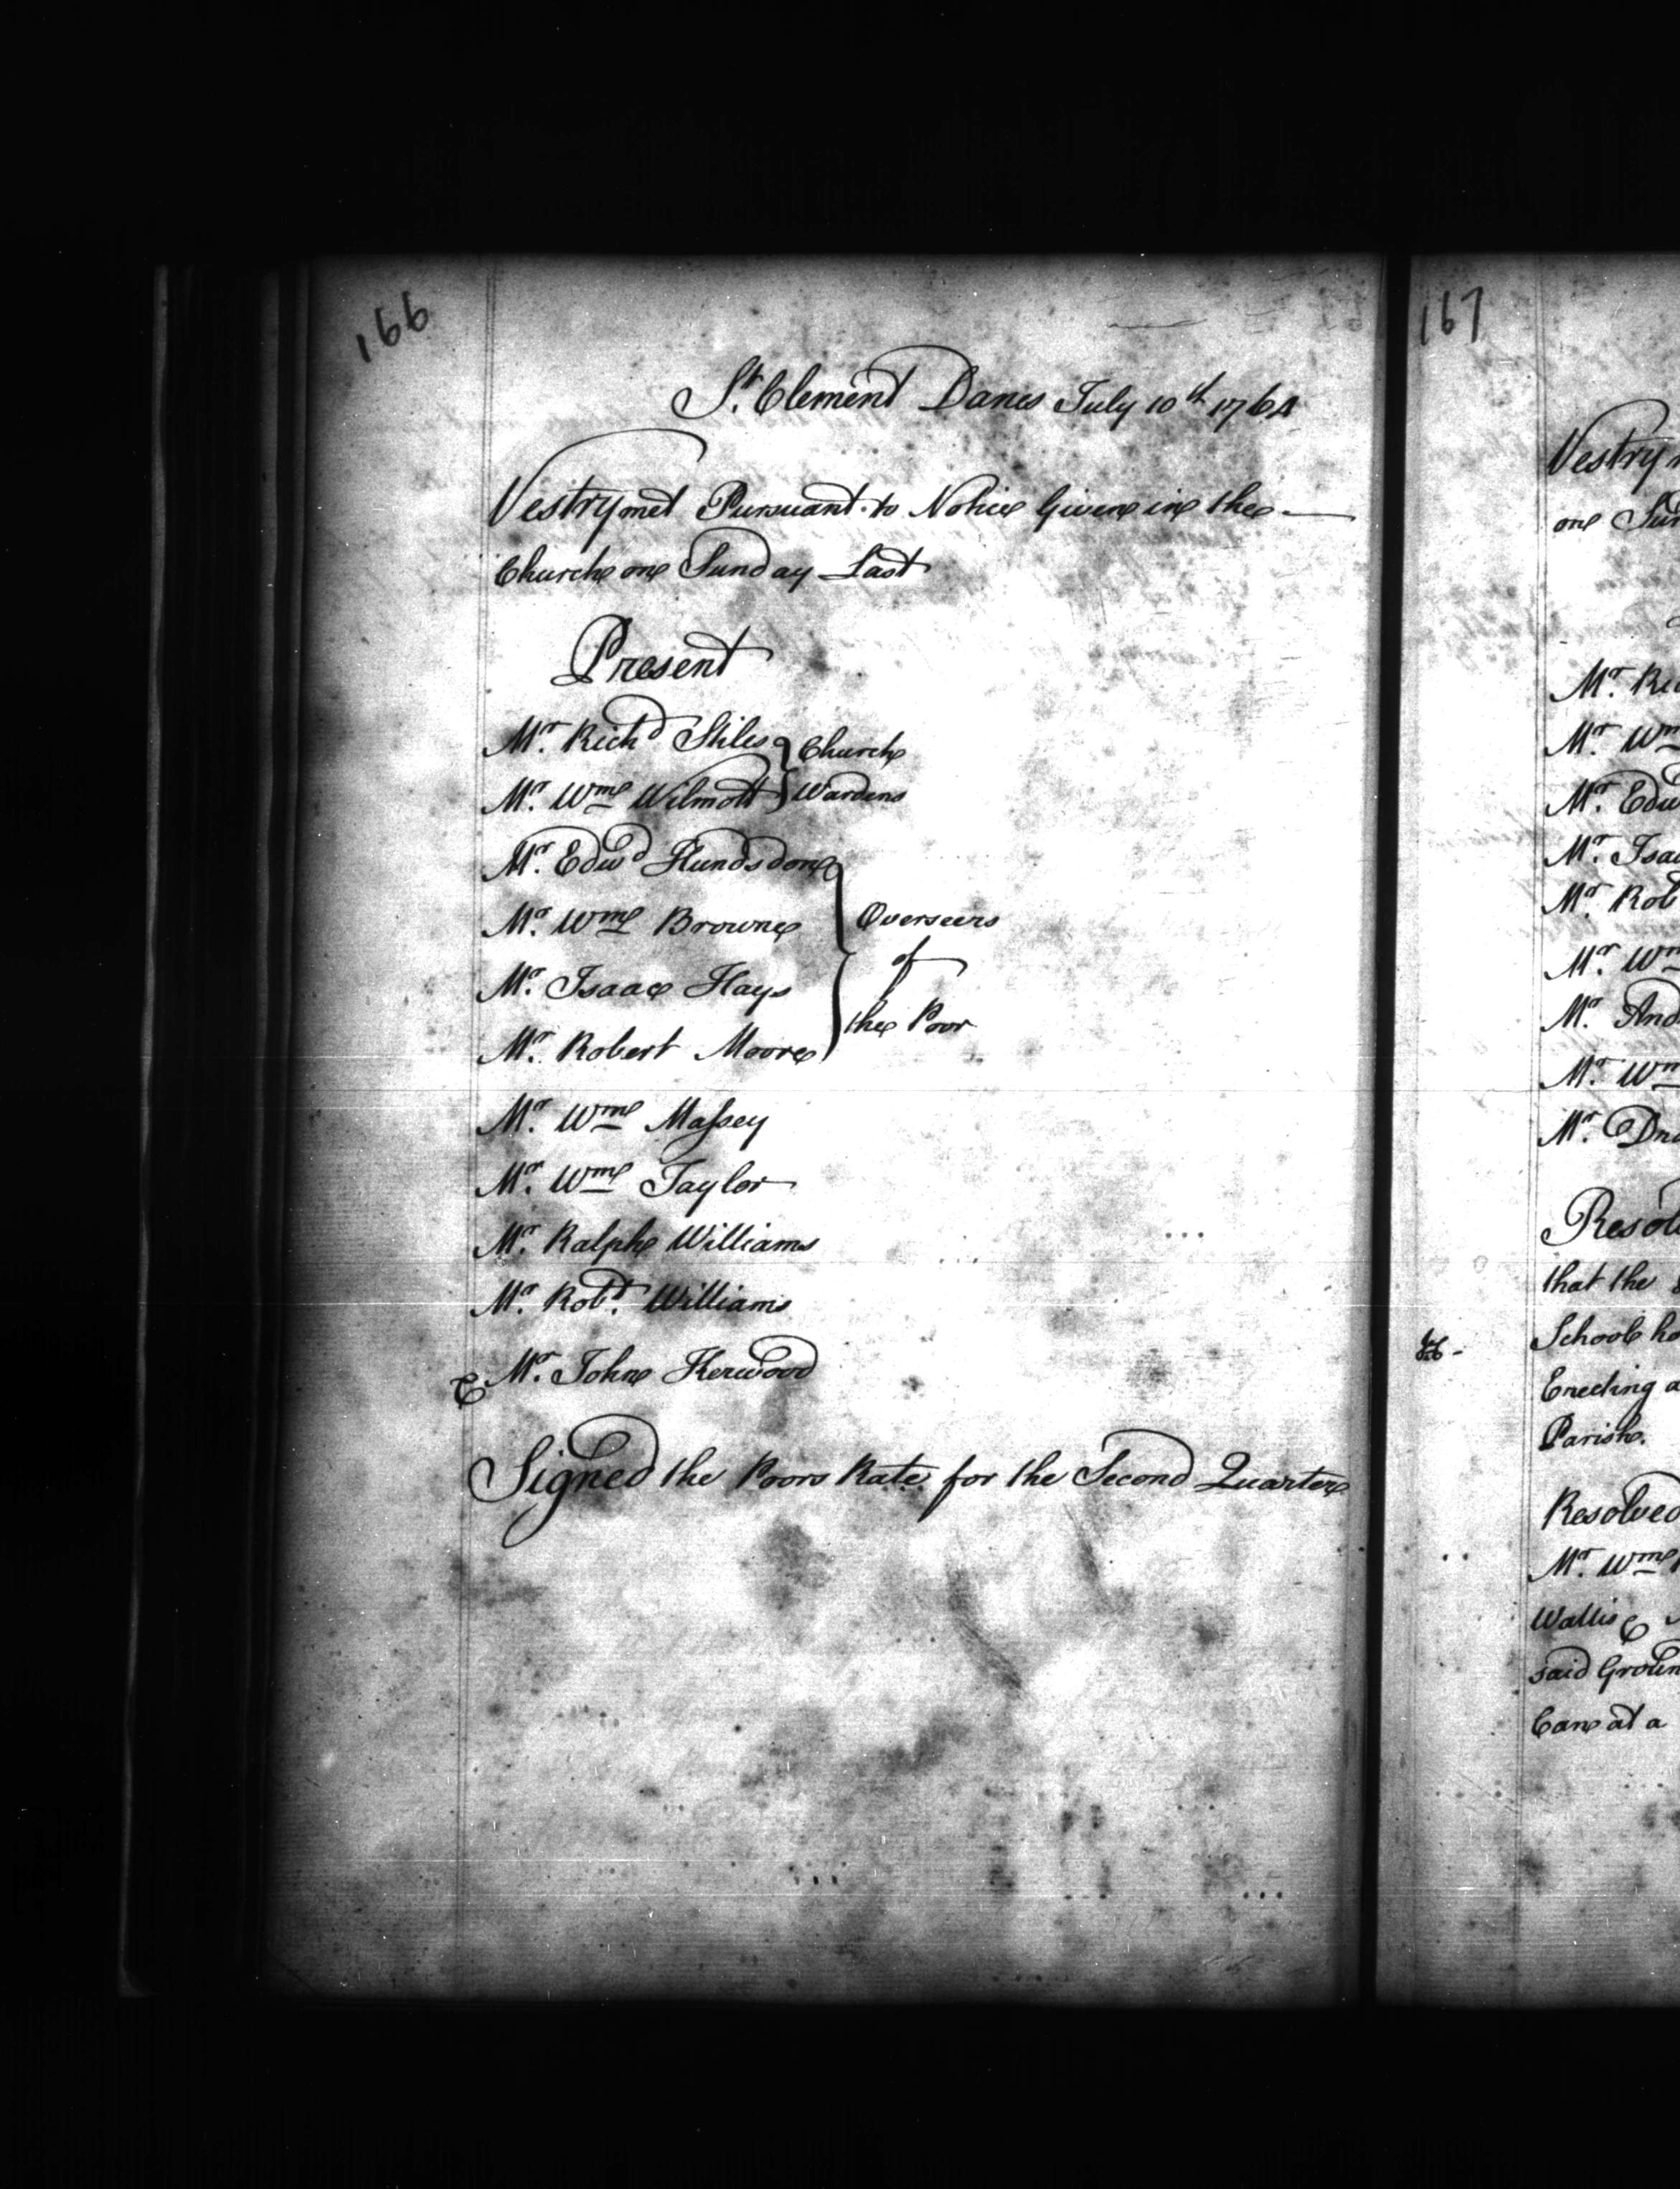 166
St. Clement Danes July 10th 1764
Vestry met Pursuant to Notice Given in the
Church on Sunday Last
Present
Mr. Richd Stiles } Church
Mr. Wm Wilmott } Wardens
Mr. Edwd Hundsdon
Mr. Wm Browne Overseers
of
Mr. Isaac Hays
the Poor
Mr. Robert Moore
Mr. Wm Massey
Mr. Wm Taylor
Mr. Ralph Williams
Mr. Robt. Williams
& Mr. John Kerwood
Signed the Poors Rate for the Second Quarter
167
Vestry
on Sun
Mr. Ric
Mr. Wm
Mr. Edw
Mr. Isaa
Mr. Rob
Mr. Wm
Mr. And
Mr. Wm
Mr. Dru
Resol
that the
School ho
Erecting a
Parish.
Resolved
Mr. Wm
Wallis &
said Groun
Can at a